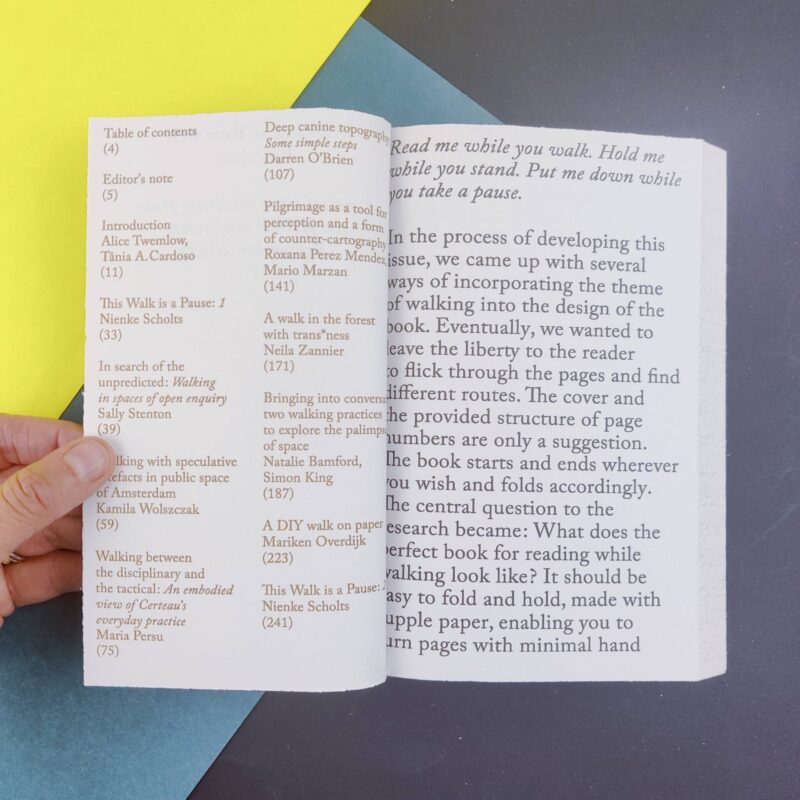 Table of contents
(4)
Editor's note
(5)
Introduction
Alice Twemlow,
Tânia A. Cardoso
(11)
This Walk is a Pause: 1
Nienke Scholts
(33)
In search of the
unpredicted: Walking
in spaces of open enquiry
Sally Stenton
(39)
with speculative
in public space
of Amsterdam
Kamila Wolszczak
(59)
Walking between
the disciplinary and
the tactical: An embodied
view of Certeau's
everyday practice
Maria Persu
(75)
Deep canine topography
Some simple steps
Darren O'Brien
(107)
Pilgrimage as a tool for
perception and a form
of counter-cartography
Roxana Perez Mendez,
Mario Marzan
(141)
A walk in the forest
with trans*ness
Neila Zannier
(171)
Bringing into
two walking practices
to explore the
of space
Natalie Bamford,
Simon King
(187)
A DIY walk on paper
Mariken Overdijk
(223)
This Walk is a Pause:
Nienke Scholts
(241)
Read me while you walk. Hold me
while you stand. Put me down while
you take a pause.
In the process of developing this
issue, we came up with several
ways of incorporating the theme
of walking into the design of the
book. Eventually, we wanted to
leave the liberty to the reader
to flick through the pages and find
different routes. The cover and
the provided structure of page
numbers are only a suggestion.
The book starts and ends wherever
you wish and folds accordingly.
The central question to the
research became: What does the
perfect book for reading while
walking look like? It should be
easy to fold and hold, made with
supple paper, enabling you to
turn pages with minimal hand